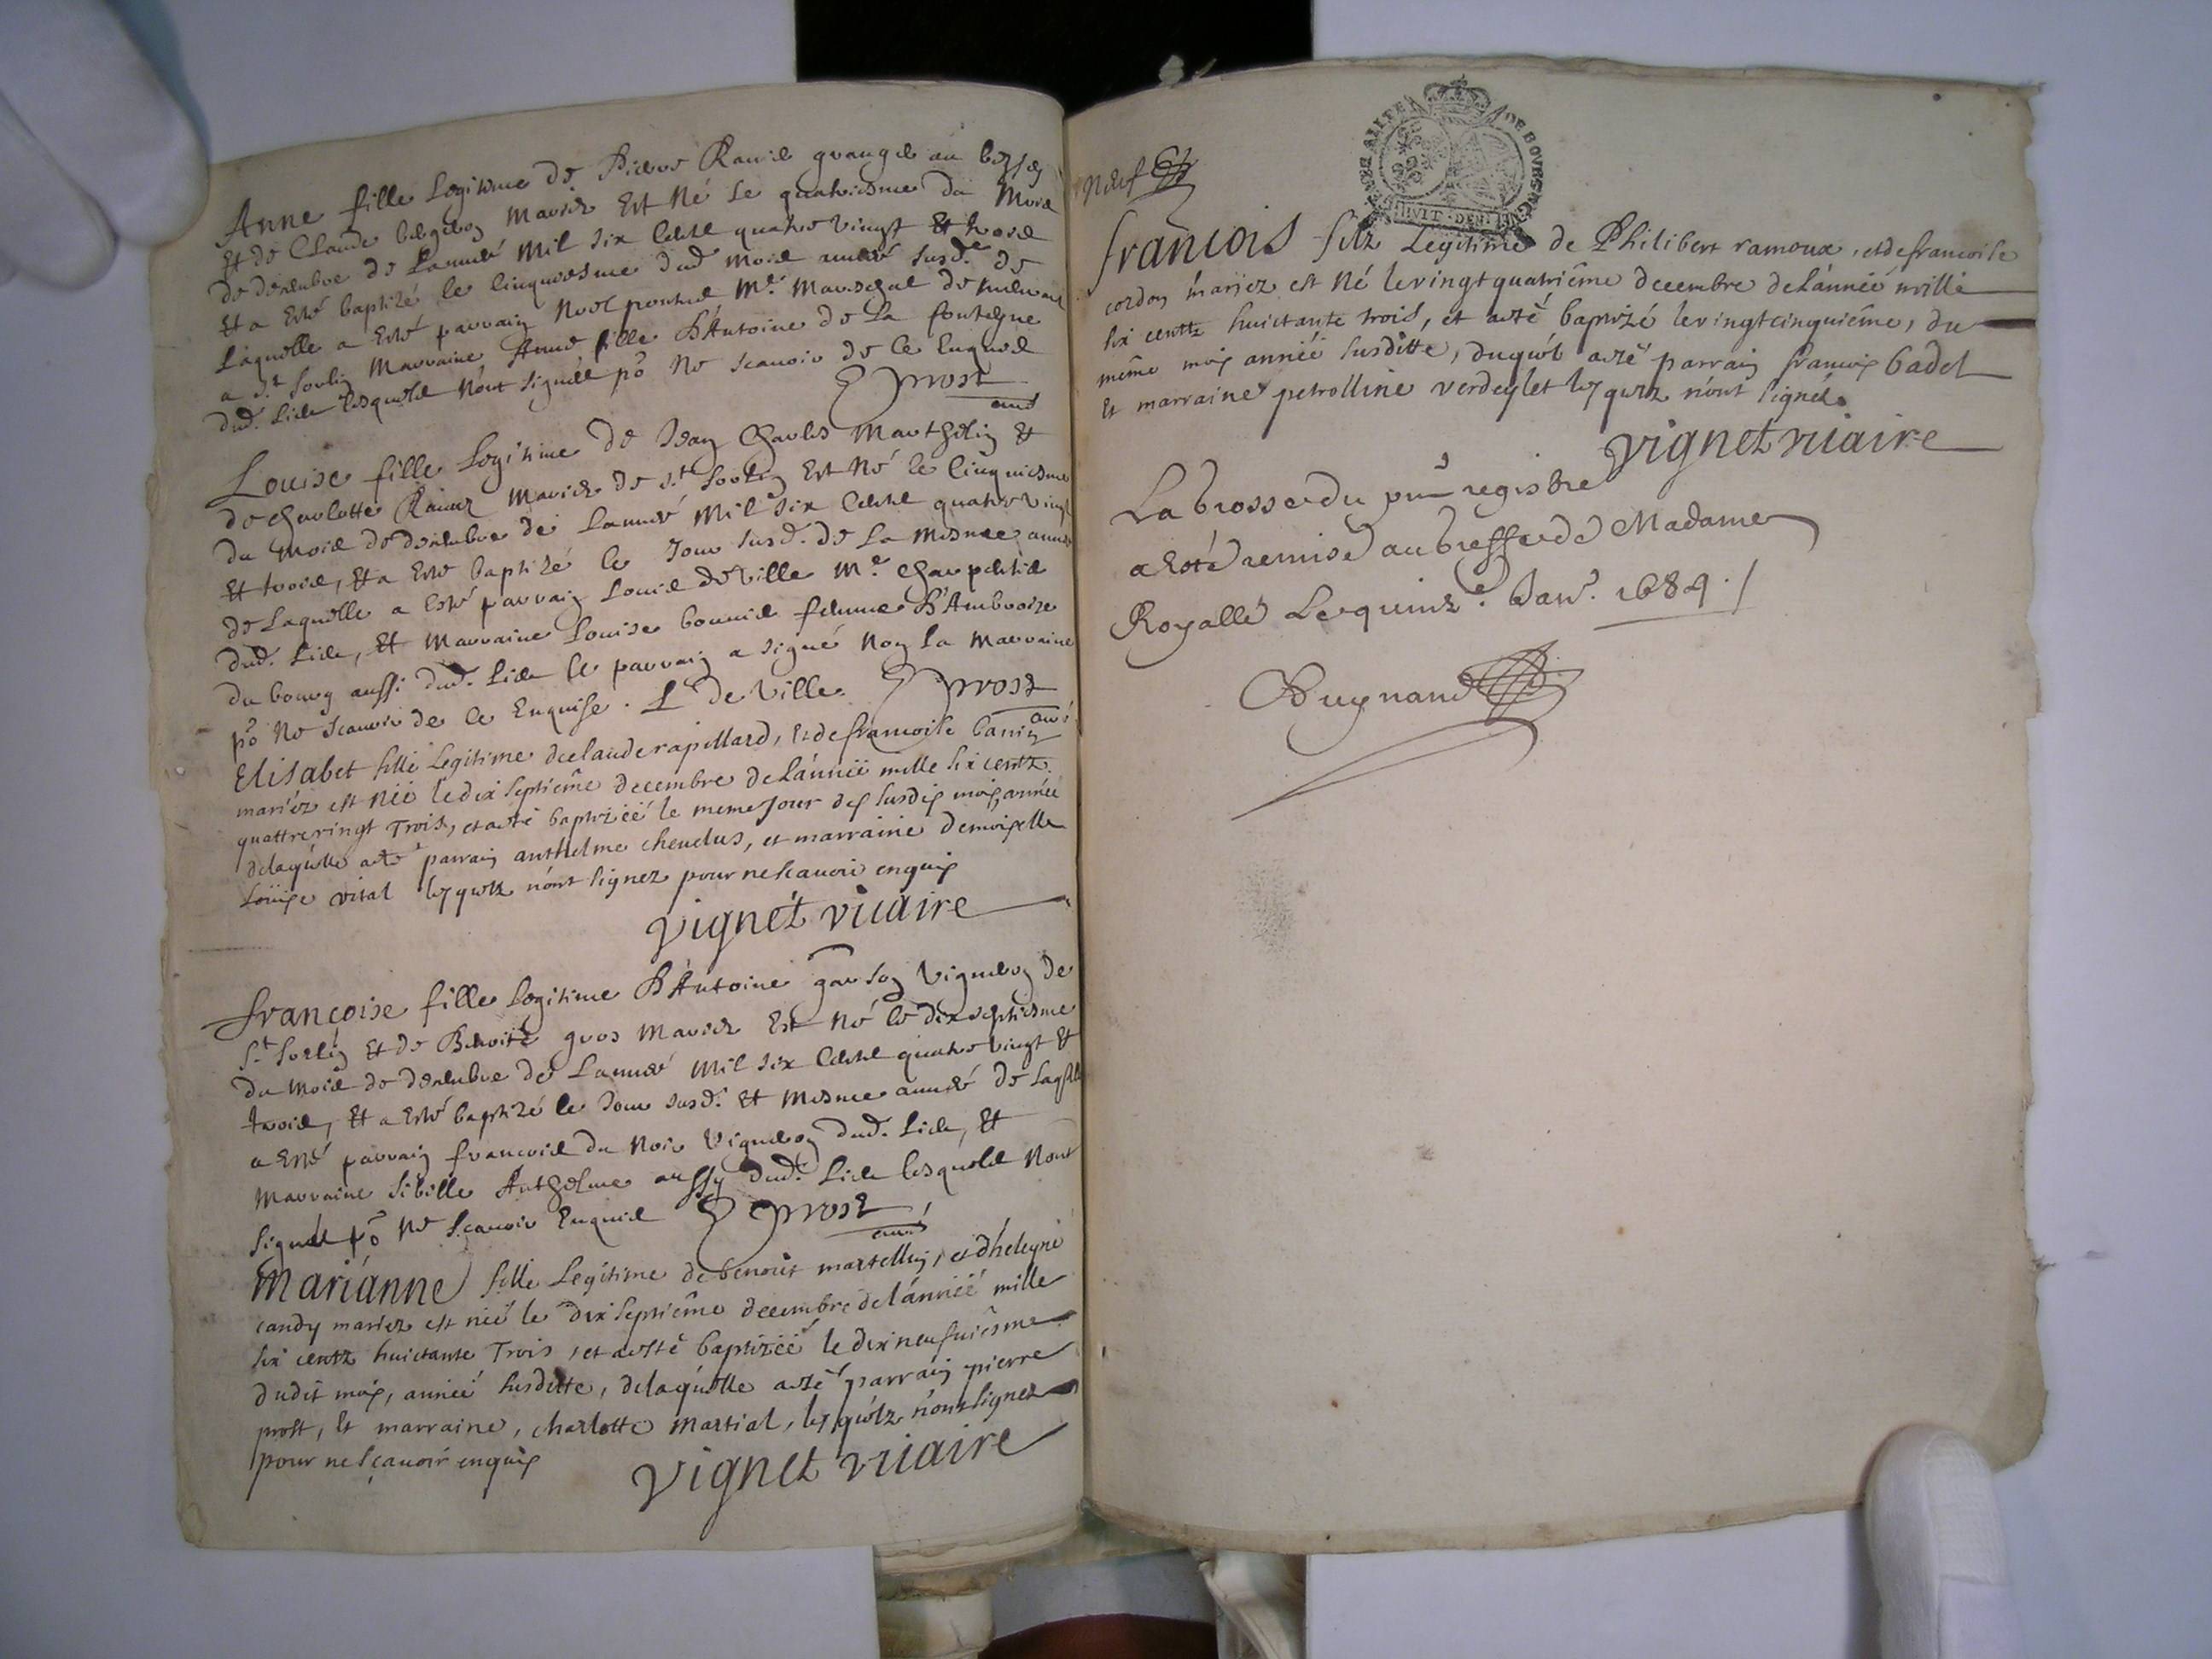 Anne fille Legitime de Pierre Ravie grangé au
Et de Claude bergeron Mariez Est Né Le quatriesme du Mois
de decembre de L'année Mil six Cents quatre vingt Et trois
Et a Esté baptizé le Cinquiesme dud. mois année susd.e de
Laquelle a Esté parrain Noel M.e Mareschal de
a S.t Sorlin Marraine Anne fille D'Antoine de La fontayne
dud. Lieu lesquels N'ont signéé po Ne scavoir de Ce Enquis
Prost
curé
Louise fille Legitime de Jean Charles Marthelin Et
de Charlotte Mariez de S.t Sorlin Est Né le Cinquiesme
du Mois de decembre de L'année Mil six Cents quatre vingt
Et trois, Et a Esté baptizé le Jour susd. de La Mesme année
de Laquelle a Esté parrain Louis deville M.e Charpentié
dud. Lieu, Et Marraine Louise femme D'Ambroise
du bourg aussi dud. Lieu le parrain a signé Non la Marraine
po Ne scavoir de Ce Enquise. L De Ville. Prost
curé
Elisabet fille Legitime de claude rapillard, et de francoise
mariéz est néé le dix septiême decembre de l'annéé mille six centz
quattre vingt Trois, et a esté baptizéé le meme Jour des susdis mois, année
de laquelle a esté parrain anthelme chenelus, et marraine demoiselle
Loüise vital lesquelz n'ont signez pour ne scauoir enquis
Vignet vicaire
françoise fille Legitime D'Antoine garson Vigneron de
S.t Sorlin Et de Benoite gros Mariez Est Né le dixseptiesme
du Mois de decembre de L'année Mil six Cents quatre vingt Et
trois, Et a Esté baptizé le Jour susd. Et Mesme année de laqlle
a Esté parrain francois du Noir Vigneron dud. Lieu, Et
Marraine Sibille Anthelme aussy dud. Lieu lesquels N'ont
signéé po Ne scavoir Enquis Prost
curé
Mariánne fille Legitime de benoiit martellin, et d'heleyne
candy mariez est néé le dix septiême decembre de l'annéé mille
six centz huictante Trois, et a esté baptizéé le dix neufuiême
dudit mois, annéé susditte, de laquelle a esté parrain pierre
prost, Et marraine, charlotte martial, lesquelz n'ont signez
pour ne sçauoir enquis
Vignet vicaire
neuf
DE BOVRGNE
HVIT DENIERS
francois filz Legitime de Philibert ramoux, et de francoise
cordon mariez est Né le vingt quatriême decembre de l'annéé mille
six centtz huictante trois, et a esté baptizé le vingt cinquiême, du
même mois annéé susditte, duquel a esté parrain francois badel
Et marraine petrolline verdeylet lesquelz n'ont signéz
Vignet vicaire
La grosse du pnt registre
a esté remise au greffe de Madame
Royalle Le quinz.e Janv. 1684./
Dugnand